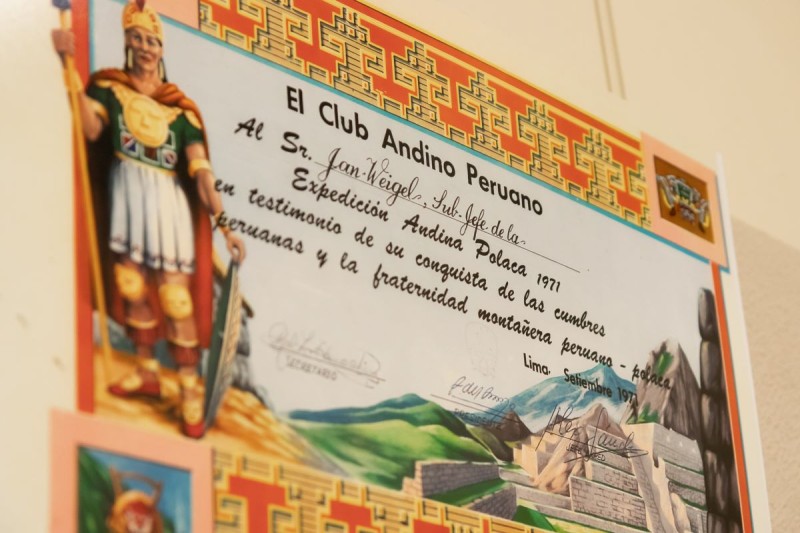 El Club Andino Peruano
Al Sr. Jan Weigel, Sub-Jefe de la
Expedición Andina Polaca 1971
en testimonio de su conquista de las cumbres
peruanas y la fraternidad montañera peruano - polaca
Lima, Setiembre 1971
SECRETARIO